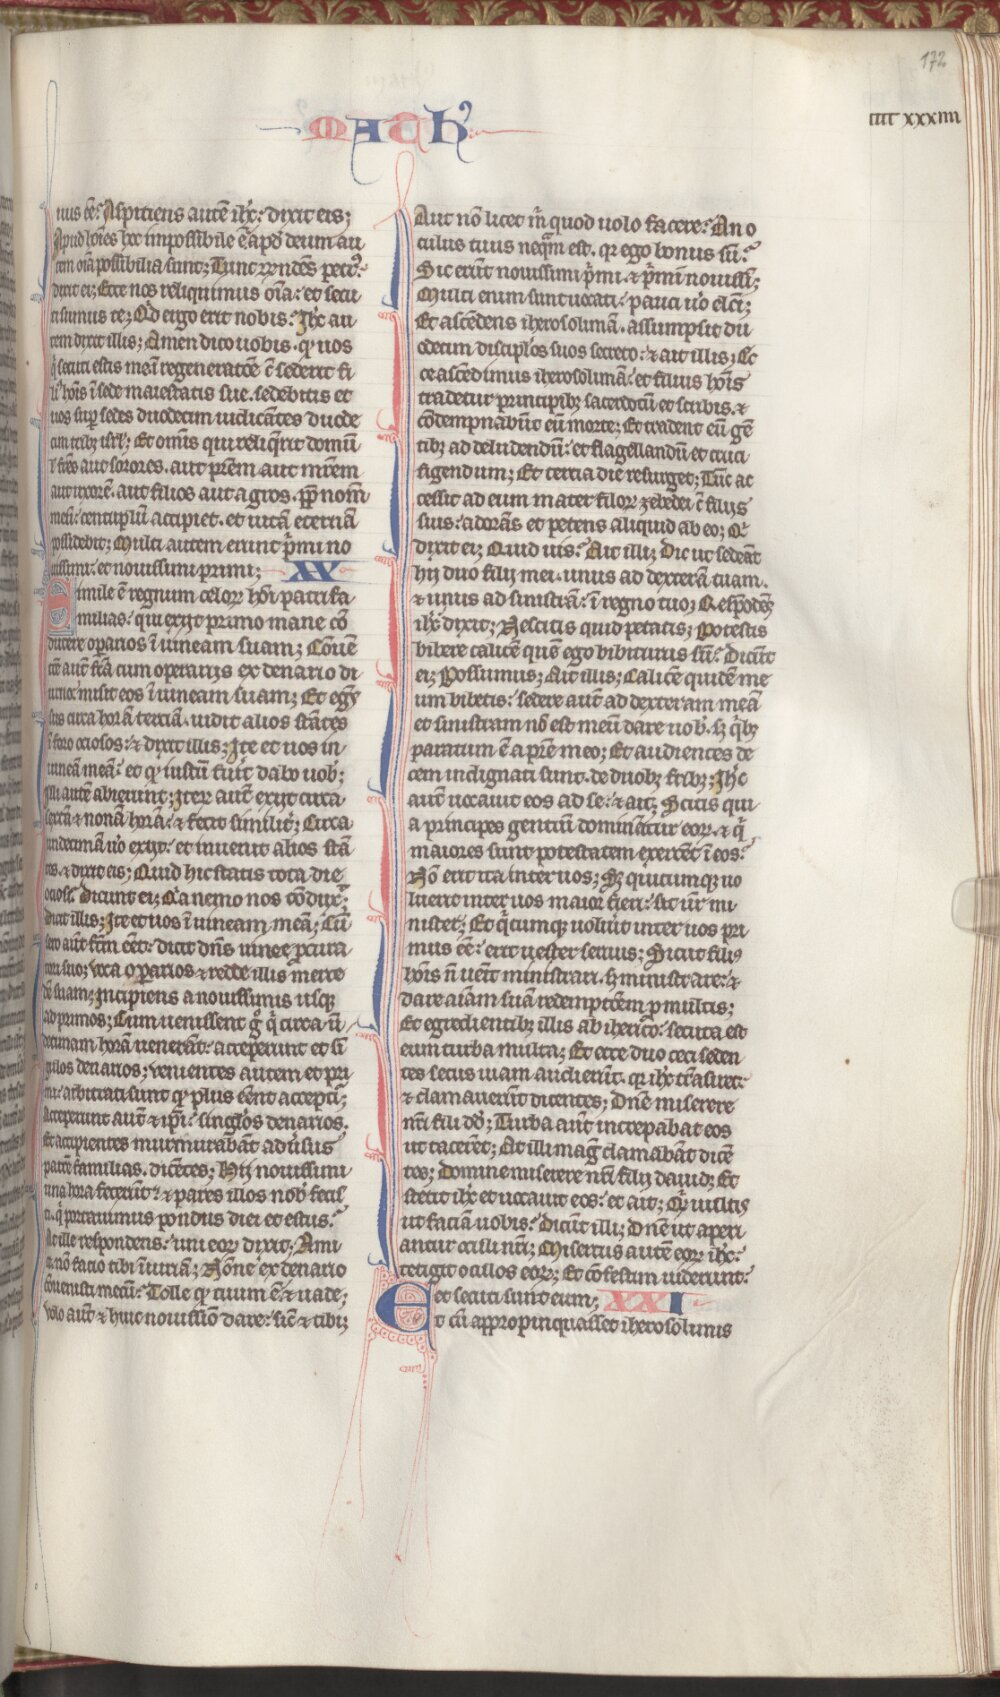 172
MATH'
iiii xxxiiii
uus eē? Aspitiens autē ih̄c: dixit eis;
Apud hoīes hoc impossibile ē apd̄ deum au
tem oīa possibilia sunt; Tunc rn̄dēs petr9:
dixit ei; Ecce nos reliquimus oīa: et secu
ti sumus te; Qd̄ ergo erit nobis? Ih̄c au
tem dixit illis; Amen dico uobis. qꝫ uos
q̄ secuti estis mē ī regeneratōe cū sederit fi
li9 hoīs ī sede maiestatis sue. sedebitis et
uos sup̄ sedes duodecim iudicātes duode
cim trib9 isr̄l; Et omīs qui reliq̄rit domū
l̄ frēs aut sorores. aut prēm aut mrēm
aut uxorē. aut filios aut agros. pp̄ nom̄
meū: centuplū accipiet. et uitā eternā
possidebit; Multi autem erunt p̄mi no
uissimi: et nouissimi primi; XX
Simile ē regnum celoꝝ hōi patri fa
milias: qui exijt primo mane cō
ducere oparios ī uineam suam; Cōuē
tōe aut̄ fcā cum operarijs ex denario di
urno: misit eos ī uineam suam; Et egr̄s
sus circa horā terciā. uidit alios stātes
ī foro ociosos: ⁊ dixit illis; Ite et uos in
uineā meā: et qꝫ iustū fuit̄ dabo uob̄;
Illi autē abierunt; Iteꝝ aut̄ exijt circa
sextā ⁊ nonā horā: ⁊ fecit similit̄; Circa
undecimā u̇o exijt: et inuenit alios stā
tes. ⁊ dixit eis; Quid hic statis tota die
ociosi? Dicunt ei; Qa nemo nos cōdux̄;
Dicit illis; Ite et uos ī uineam meā; Cū
sero aut̄ fcm̄ eēt: dicit dn̄s uinee pcura
tori suo; Voca oparios ⁊ redde illis merce
dē suam; Incipiens a nouissimis usqꝫ
ad primos; Cum uenissent ḡ q̄ circa ū
decimam horā uenerāt: acceperunt et sī
gulos denarios; Venientes autem et pri
mi: arbitrati sunt qꝫ plus eēnt accepti;
Acceperunt aut̄ ⁊ ip̄i: singlos denarios.
Et accipientes murmurabāt adūsus
patrē familias. dicētes; Hij nouissimi
una hora fecerūt: ⁊ pares illos nob̄ fecis
ti. q̄ portauimus pondus diei et estus?
At ille respondens: uni eoꝝ dixit; Ami
ce nō facio tibi iniuriā; Nōne ex denario
cōuenisti mecū? Tolle qꝫ tuum ē. ⁊ uade;
Volo aut̄ ⁊ huic nouissīo dare: sic̄ ⁊ tibi;
Aut nō licet m̄ quod uolo facere? An o
culus tuus neqm̄ est. qꝛ ego bonus sū?
Sic erūt nouissimi p̄mi. ⁊ p̄mi nouissi;
Multi enim sunt uocati: pauci u̇o elcī;
Et ascēdens iherosolimā. assumpsit du
odecim disciplōs suos secreto: ⁊ ait illis; Ec
ce ascēdimus iherosolimā: et filius hoīs
tradetur principibꝫ sacerdotū et scribis. ⁊
cōdempnabūt eū morte; Et tradent eū gē
tibꝫ ad deludendū: et flagellandū et cruci
figendum; Et tercia die resurget; Tūc ac
cessit ad eum mater filioꝝ zebedei cū filijs
suis: adorās et petens aliquid ab eo; Qi
dixit ei; Quid uis? Ait illi; Dic ut sedeāt
hij duo filij mei. unus ad dexterā tuam.
⁊ unus ad sinistrā: ī regno tuo; Respōdēs
ih̄c dixit; Nescitis quid petatis; Potestis
bibere calicē quē ego bibiturus sū? Dicūt
ei; Possumus; Ait illis; Calicē quidē me
um bibetis: sedere aut̄ ad dexteram meā
et sinistram nō est meū dare uob̄. sꝫ q̄bꝫ
paratum ē a prē meo; Et audientes de
cem indignati sunt. de duobꝫ frībꝫ; Ih̄c
aut̄ uocauit eos ad se: ⁊ ait; Scitis qui
a principes gentiū domināt̄ur eoꝝ. ⁊ q̄
maiores sunt potestatem exercēt ī eos?
Nō erit ita inter uos; Sꝫ quicumqꝫ uo
luerit inter uos maior fieri: sit ur̄ mi
nister; Et q̄cumqꝫ uolūit inter uos pri
mus eē: erit uester seruus; Sicut filis
hoīs n̄ uēit ministrari. sꝫ ministrare: ⁊
dare aīam suā redemptōem p multis;
Et egredientibꝫ illis ab ihericō: secuta est
eum turba multa; Et ecce duo ceci seden
tes secus uiam audierūt. qꝛ ih̄c trāsiret:
⁊ clamauerūt dicentes; Dn̄e miserere
nr̄i fili dd̄; Turba aut̄ increpabat eos
ut tacerēt; At illi mag̣ clamabāt dicē
tes; Domine miserere nr̄i fili dauid; Et
stetit ih̄c et uocauit eos: et ait; Qd̄ uultis
ut faciā uobis? Dicūt illi; Dn̄e ut aperi
antur oculi nr̄i; Misertus autē eoꝝ ih̄c:
tetigit oculos eoꝝ; Et cōfestim uiderunt:
et secuti sunt eum; XXI
Et cū appropinquasset iherosolimis